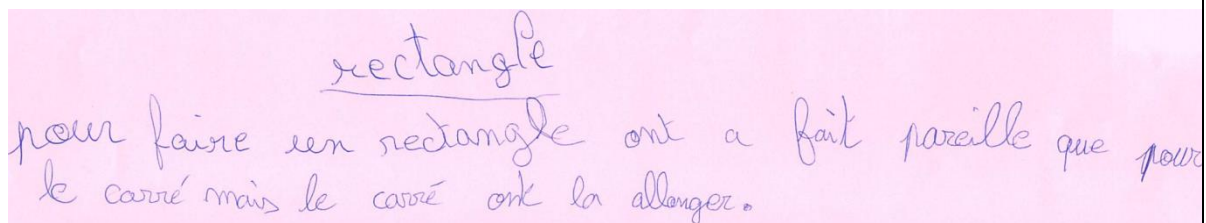 rectangle
pour faire un rectangle ont a fait pareille que pour
le carré mais le carré ont la allonger.